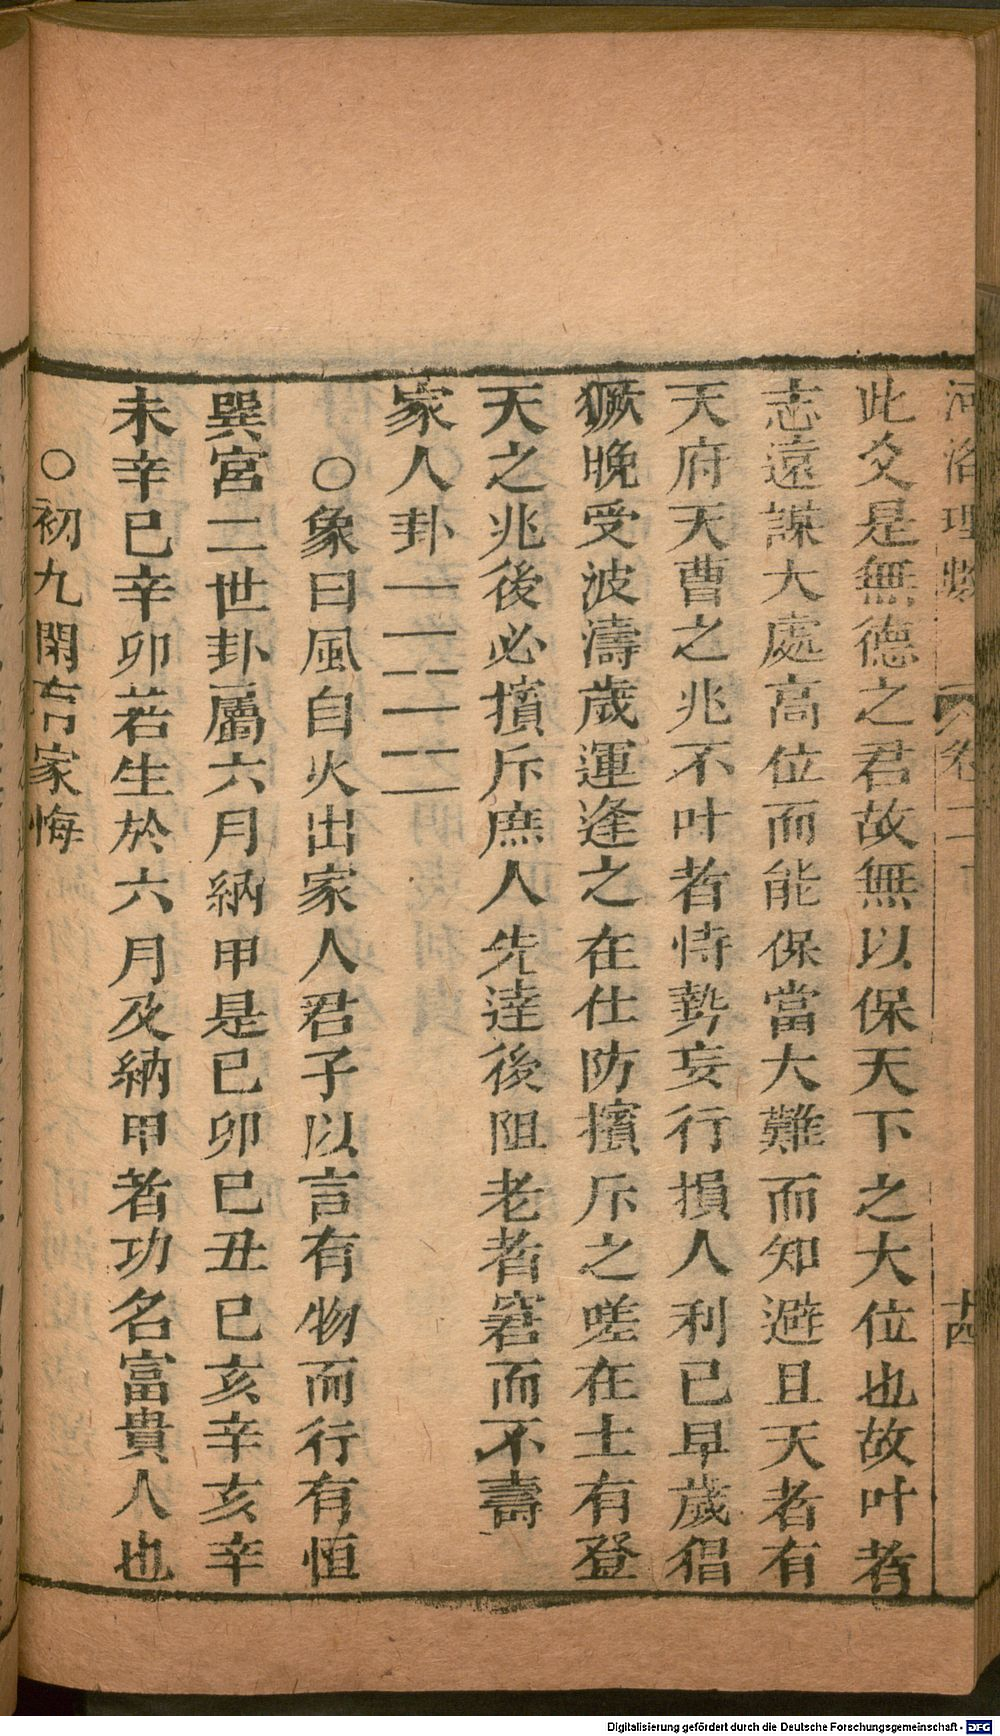 河洛理數 卷二下 十四
此爻是無德之君故無以保天下之大位也故叶者
志遠謀大處高位而能保當大難而知避且天者有
天府天曹之兆不叶者恃勢妄行損人利已早歲猖
獗晚受波濤歲運逢之在仕防擯斥之嗟在士有登
天之兆後必擯斥庶人先達後阻老者窘而不壽
家人卦
○象曰風自火出家人君子以言有物而行有恒
巽宮二世卦屬六月納甲是已卯已丑已亥辛亥辛
未辛巳辛卯若生於六月及納甲者功名富貴人也
○初九閑有家悔
Digitalisierung gefördert durch die Deutsche Forschungsgemeinschaft - DFG